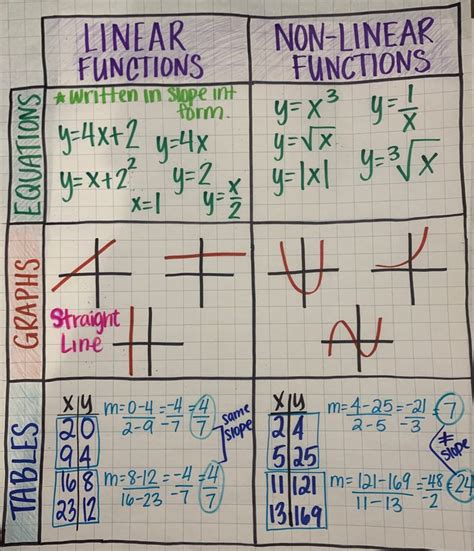 LINEAR FUNCTIONS
NON-LINEAR FUNCTIONS
EQUATIONS
★ written in Slope int form.
y=4x+2
y=4x
y=x+2²
y=2
x=1
y=x/2
y=x³
y=1/x
y=√x
y=|x|
y=³√x
GRAPHS
Straight
Line
TABLES
x | y
2 | 0
9 | 4
16 | 8
23 | 12
m=0-4/2-9=-4/-7=4/7
m=8-12/16-23=-4/-7=4/7
same
slope
x | y
2 | 4
5 | 25
11 | 121
13 | 169
m=4-25/2-5=-21/-3=7
m=121-169/11-13=-48/-2=24
≠
slope